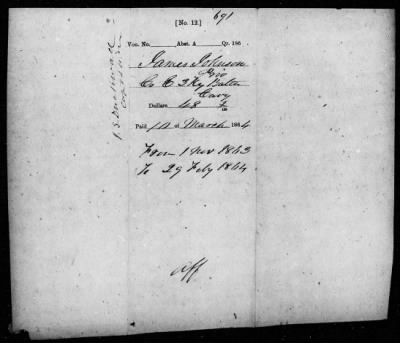 691
[No. 12.]
Vou. No. Abst. A Qr. 186
James Johnson
Co C 3 Ky Battn
Cavy
Dollars 48
Paid 10 of March 1864
From 1 Nov 1863
To 29 Feby 1864